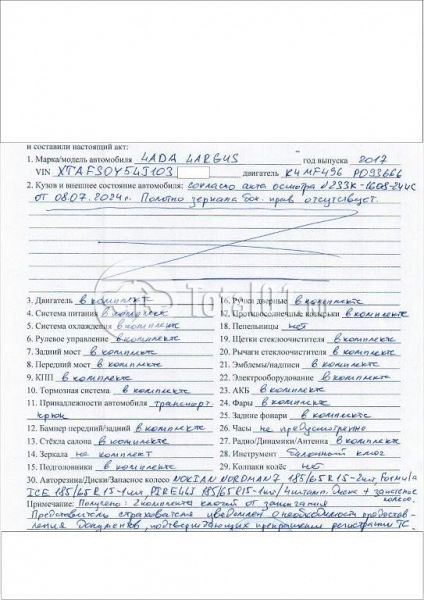 и составили настоящий акт:
1. Марка/модель автомобиля LADA LARGUS год выпуска 2017
VIN XTAFS0Y54J103 двигатель K4MF496 PD93666
2. Кузов и внешнее состояние автомобиля: согласно акта осмотра №233К-1608-24ЧС
от 08.07.2024г. Полотно зеркала бок. прав отсутствует.
3. Двигатель в комплект
4. Система питания в комплекте
5. Система охлаждения в комплекте
6. Рулевое управление в комплекте
7. Задний мост в комплекте
8. Передний мост в комплекте
9. КПП в комплекте
10. Тормозная система в комплекте
11. Принадлежности автомобиля транспорт.
крюк
12. Бампер передний/задний в комплекте
13. Стёкла салона в комплекте
14. Зеркала не комплект
15. Подголовники в комплекте
16. Ручки дверные в комплекте
17. Противосолнечные козырьки в комплекте
18. Пепельницы нет
19. Щетки стеклоочистителя в комплекте
20. Рычаги стеклоочистителя в комплекте
21. Эмблемы/надписи в комплекте
22. Электрооборудование в комплекте
23. АКБ в комплекте
24. Фары в комплекте
25. Задние фонари в комплекте
26. Часы не предусмотрено
27. Радио/Динамики/Антенна в комплекте
28. Инструмент балонный ключ
29. Колпаки колёс нет
30. Авторезина/Диски/Запасное колесо NOKIAN NORDMAN 7 185/65R15-2шт, Formula
ICE 185/65R15-1шт, PIRELLI 185/65R15-1шт/4штамп. диска + запасное
колесо.
Примечание: Получено: 2 комплекта ключей от зажигания
Представитель страхователя уведомлен о необходимости предостав-
ления документов, подтверждающих прекращение регистрации ТС.
Total01.ru